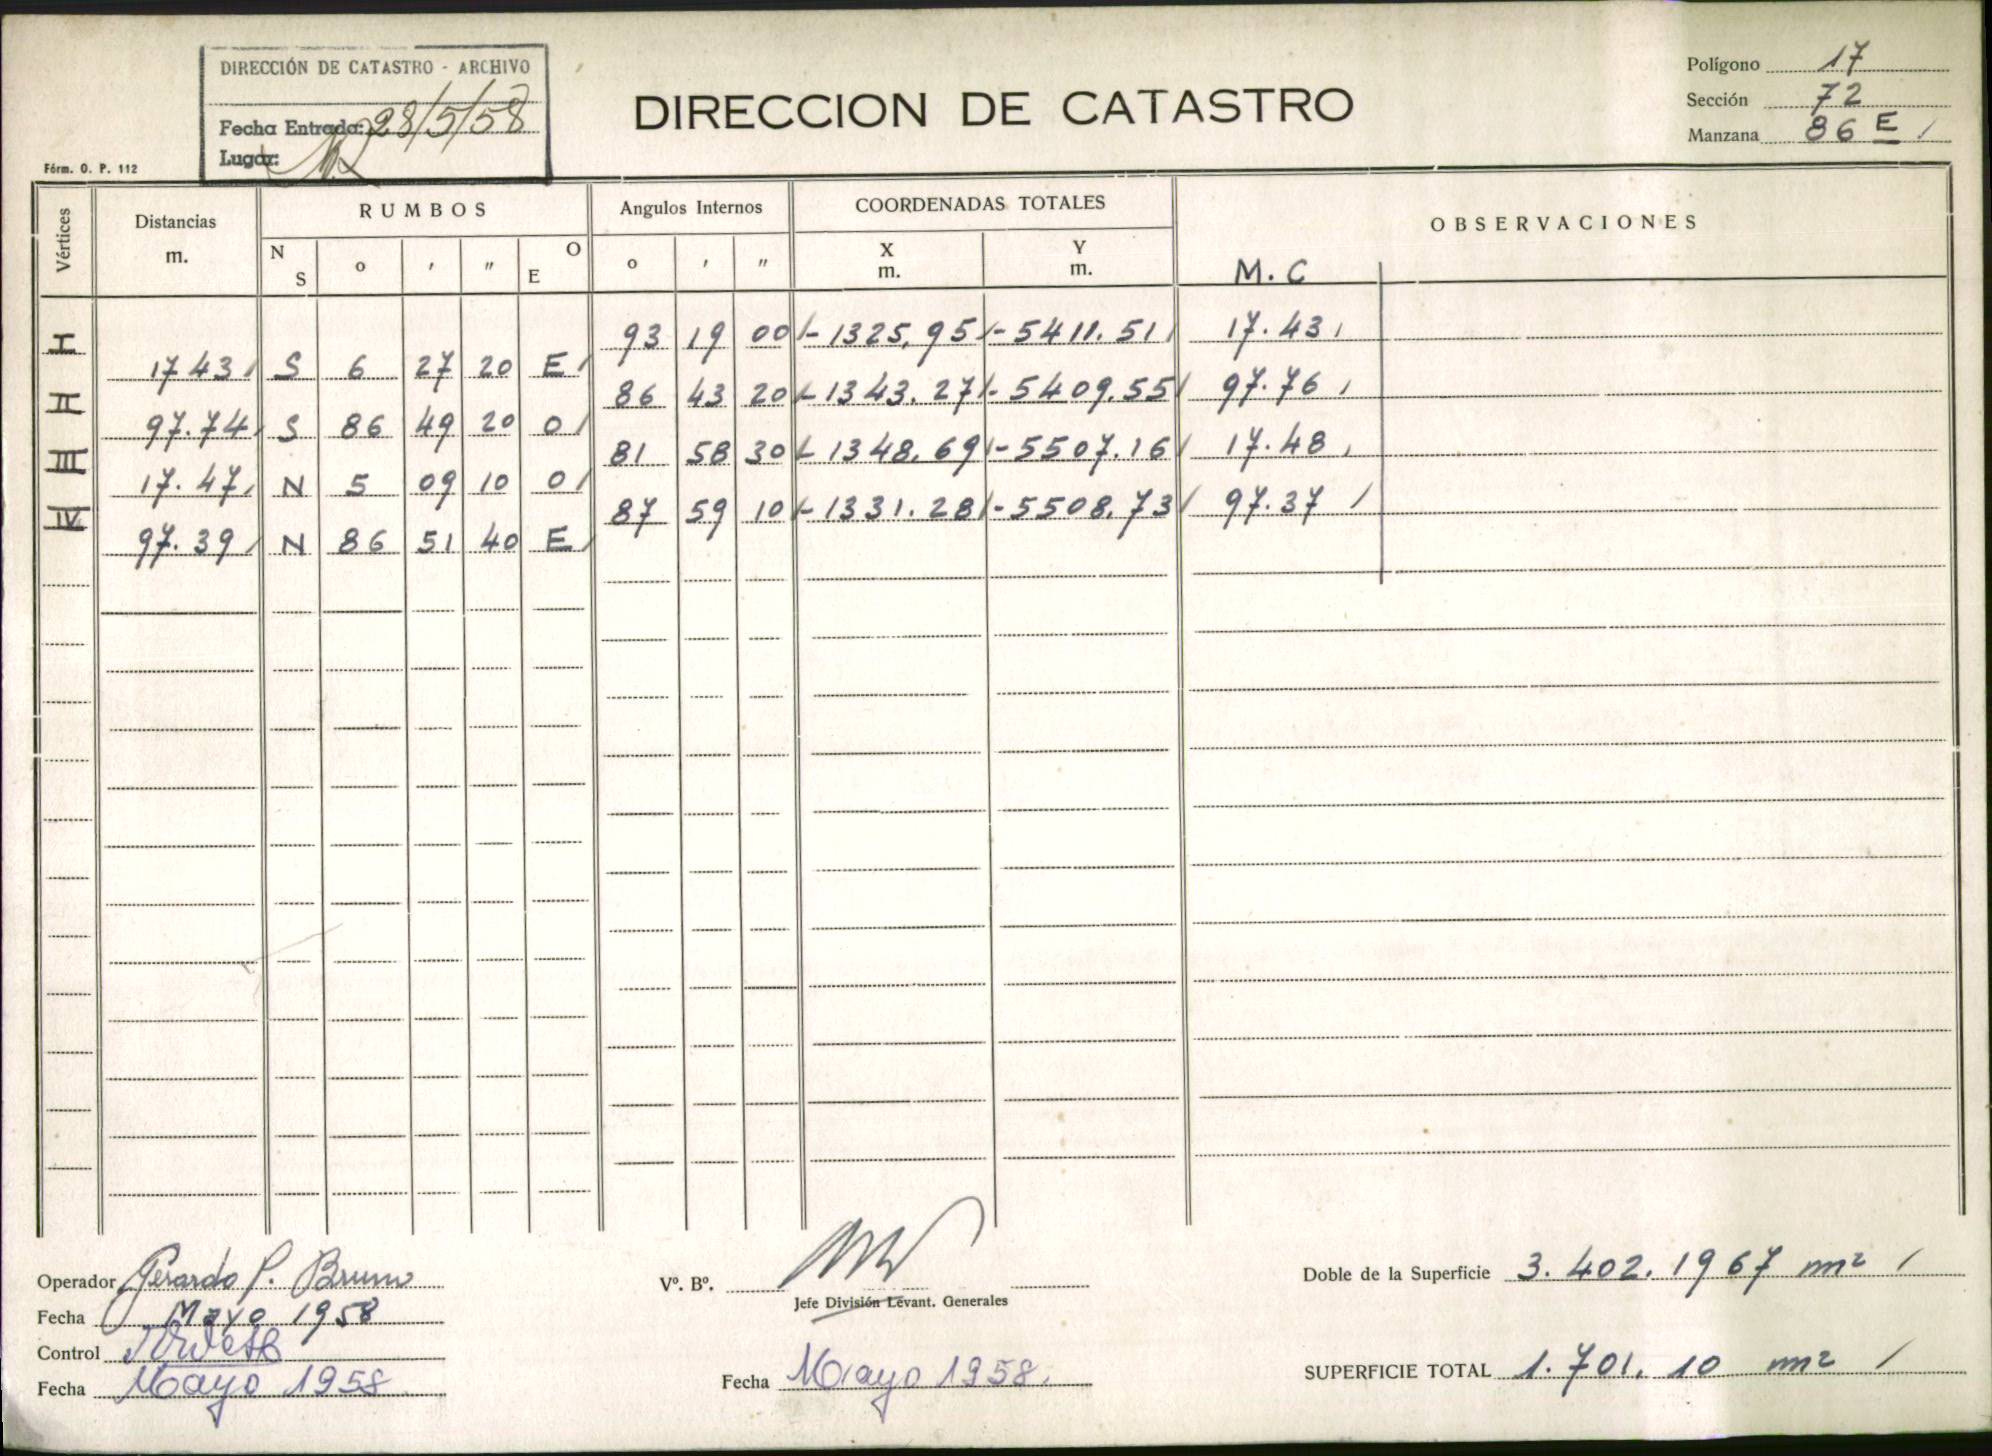 DIRECCIÓN DE CATASTRO - ARCHIVO
Fecha Entrada: 28/5/58
Lugar:
Fórm. O. P. 112
DIRECCION DE CATASTRO
Polígono 17
Sección 72
Manzana 86 E /
Vértices Distancias m. RUMBOS Angulos Internos COORDENADAS TOTALES OBSERVACIONES
N S o ' " O E o ' " X m. Y m. M. C
I 93 19 00 /- 1325,95 /- 5411.51 / 17.43 /
17 43 / S 6 27 20 E /
II 86 43 20 /- 1343.27 /- 5409.55 / 97.76 /
97.74 / S 86 49 20 O /
III 81 58 30 /- 1348.69 /- 5507.16 / 17.48 /
17.47 / N 5 09 10 O /
IV 87 59 10 /- 1331.28 /- 5508.73 / 97.37 /
97.39 / N 86 51 40 E /
Operador Gerardo P. Bruno
Fecha Mayo 1958
Control
Fecha Mayo 1958
Vº. Bº.
Jefe División Levant. Generales
Fecha Mayo 1958.
Doble de la Superficie 3.402.1967 m² /
SUPERFICIE TOTAL 1.701.10 m² /